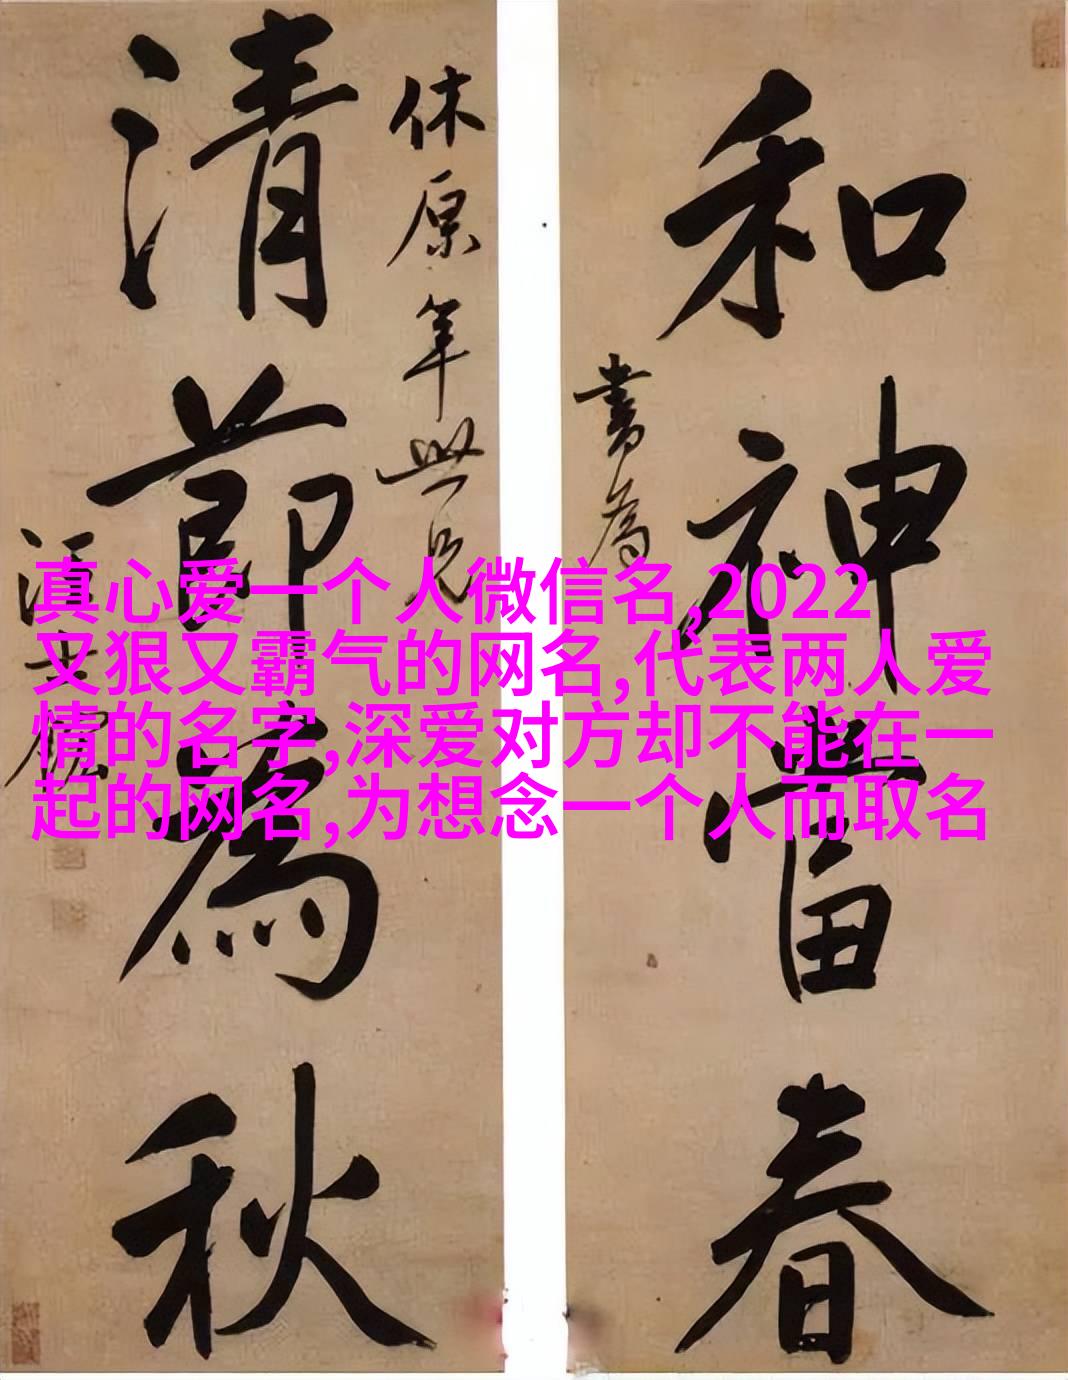 和神當春
書為
休原年世兄
清節為秋
汪士鋐
真心爱一个人微信名,2022
又狠又霸气的网名,代表两人爱
情的名字,深爱对方却不能在一
起的网名,为想念一个人而取名